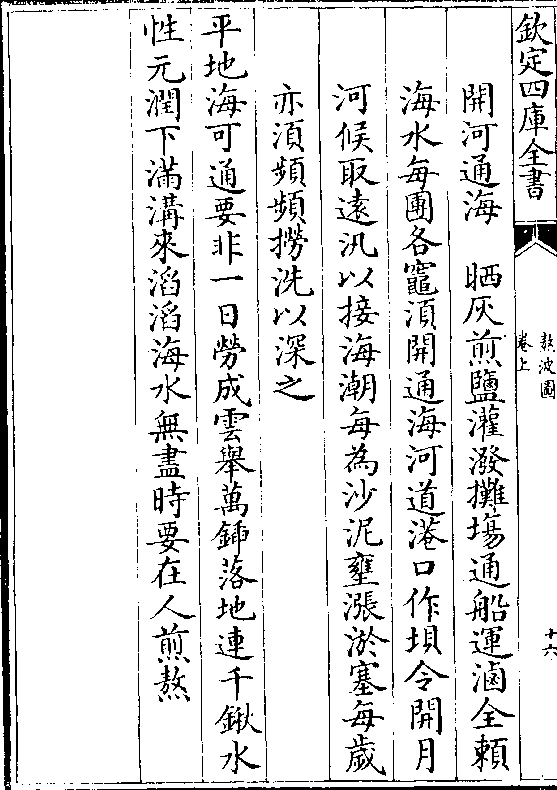 欽定四庫全書
熬波圖
卷上
十六
開河通海　晒灰煎鹽灌潑攤塲通船運滷全賴
海水每團各竈須開通海河道港口作垻令開月
河候取遠汛以接海潮每為沙泥壅漲淤塞每歲
亦須頻頻撈洗以深之
平地海可通要非一日勞成雲舉萬鍤落地連千鍬水
性元潤下滿溝來滔滔海水無盡時要在人煎熬